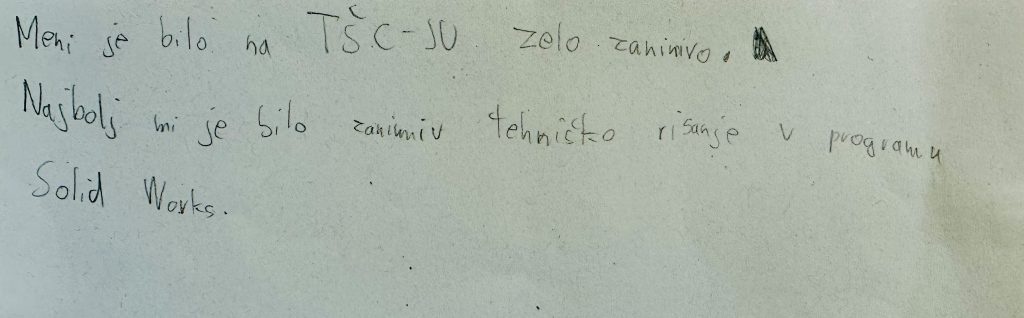 Meni je bilo na TŠC-JU zelo zanimivo.
Najbolj mi je bilo zanimiv tehničko risanje v programu
Solid Works.